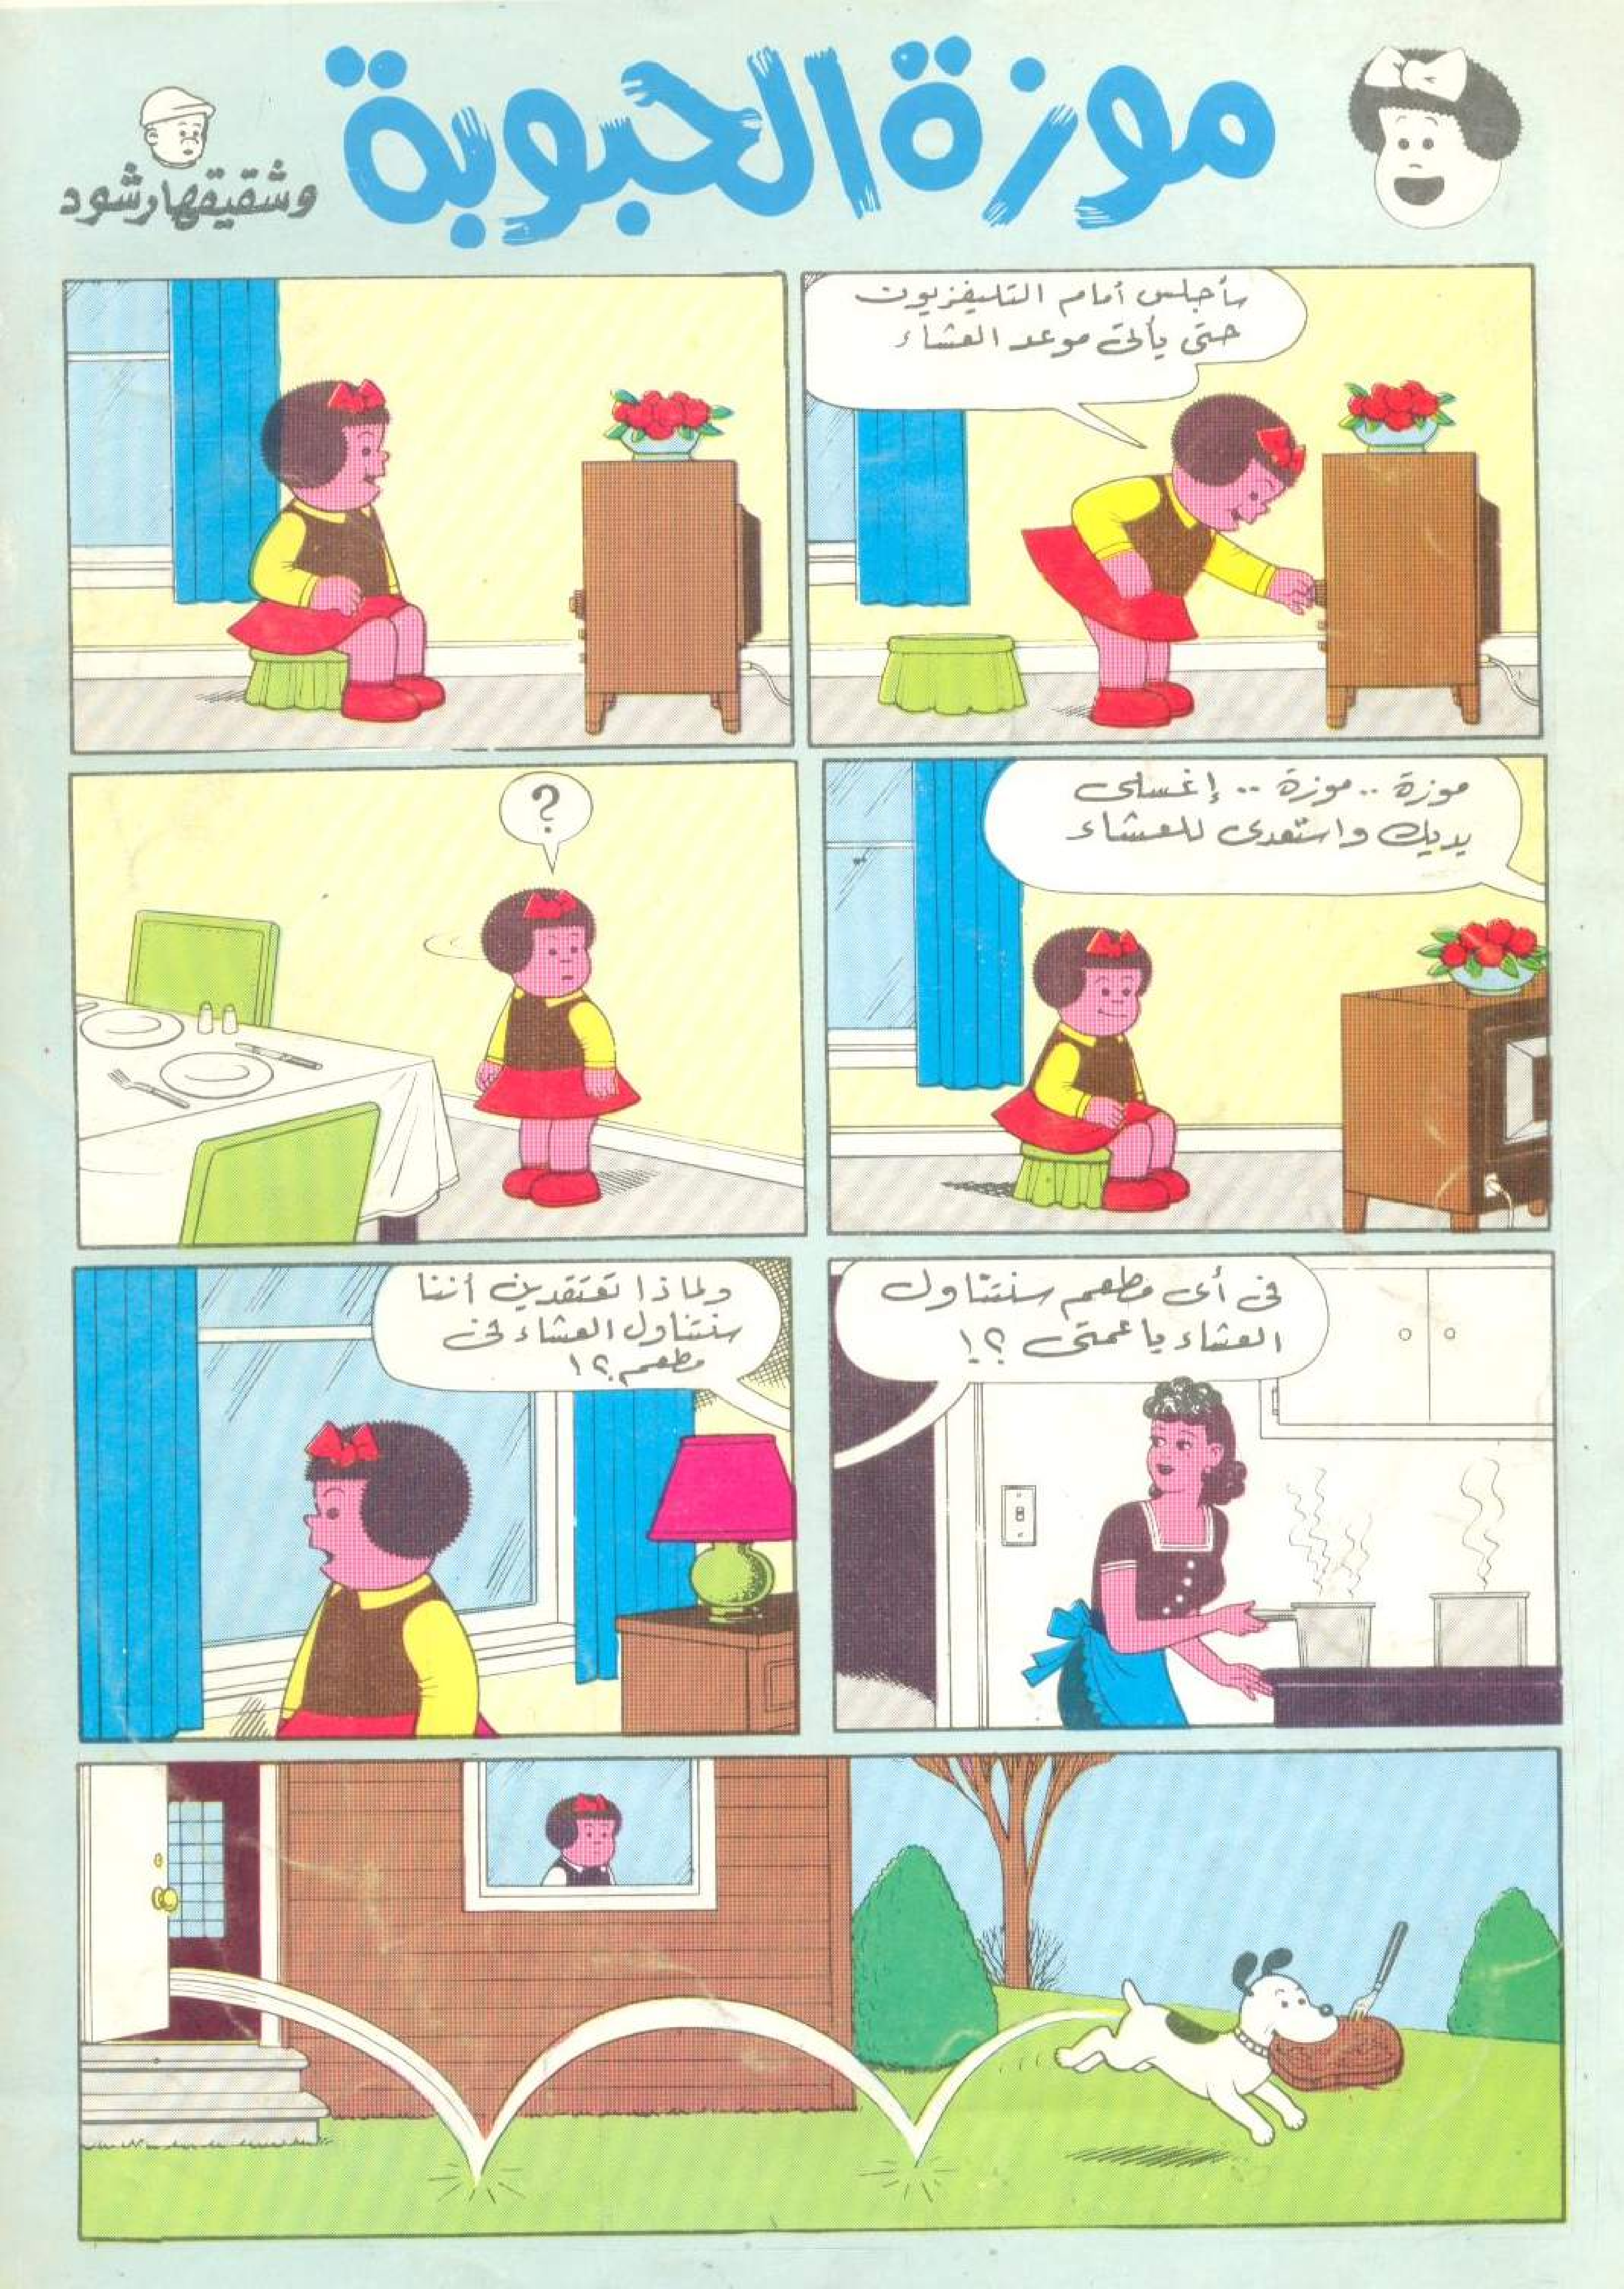 موزة الحبوبة
وشقيقها رشود
سأجلس أمام التليفزيون
حتى يأتى موعد العشاء
موزة .. موزة .. إغسلى
يديك واستعدى للعشاء
?
فى أى مطعم سنتناول
العشاء يا عمتى ؟!
ولماذا تعتقدين أننا
سنتناول العشاء فى
مطعم ؟!